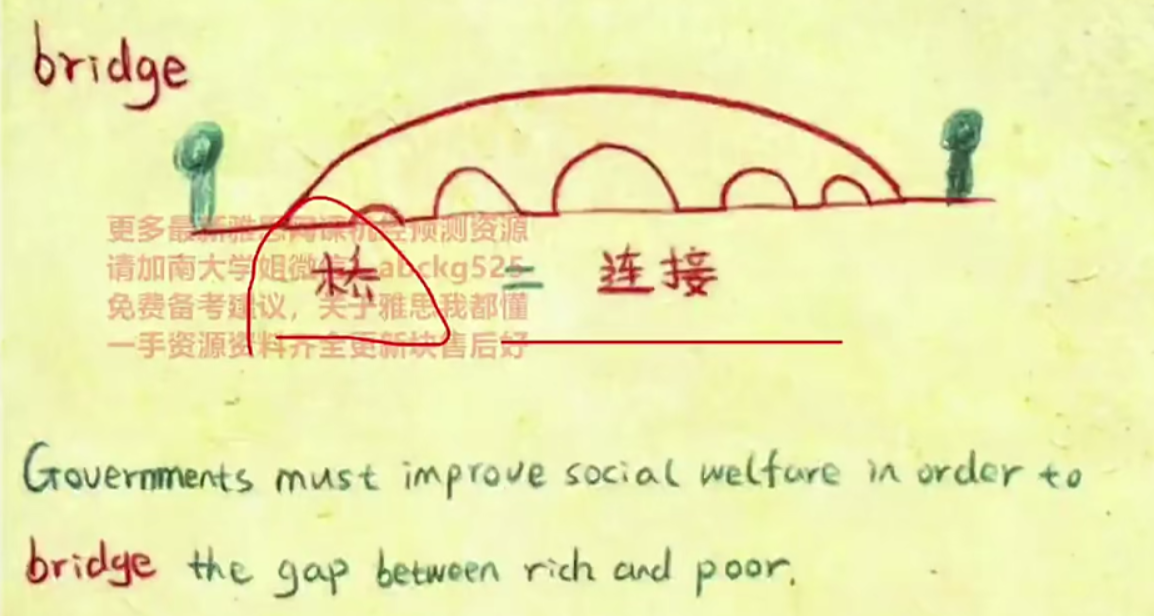 bridge
更多最新雅思网课机经预测资源
请加南大学姐微信：abckg525
桥 = 连接
免费备考建议，关于雅思我都懂
一手资源资料齐全更新快售后好
Governments must improve social welfare in order to
bridge the gap between rich and poor.